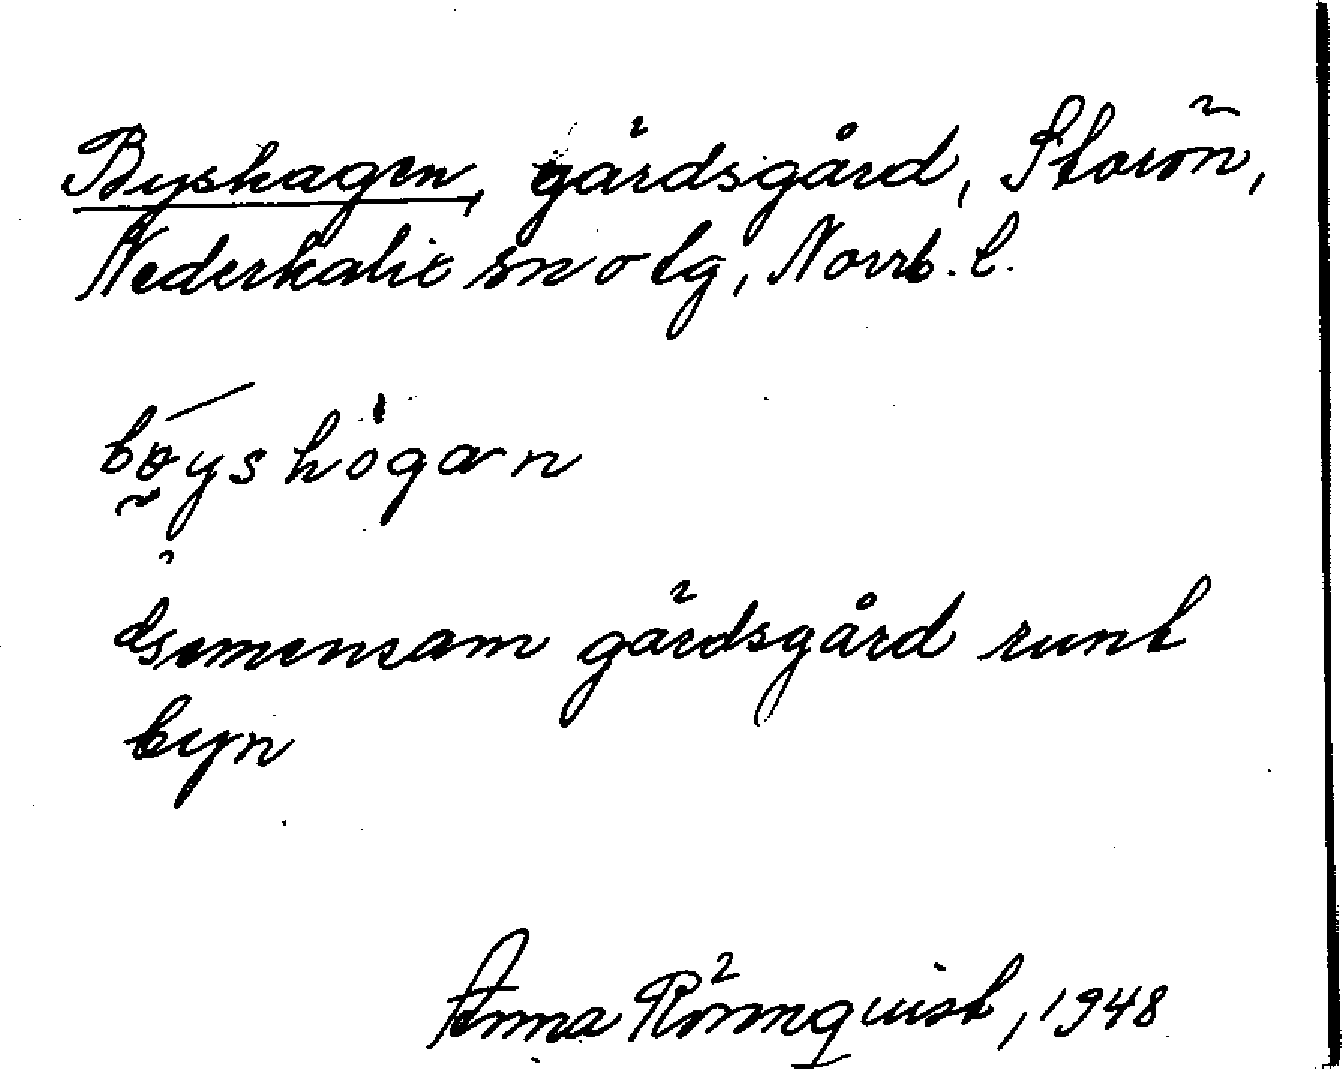 Byshagen, gärdsgård, Storön,
Nederkalix snolg, Norrb. l.
bøyshögan
Gemensam gärdsgård runt
byn
Anna Rönnquist, 1948